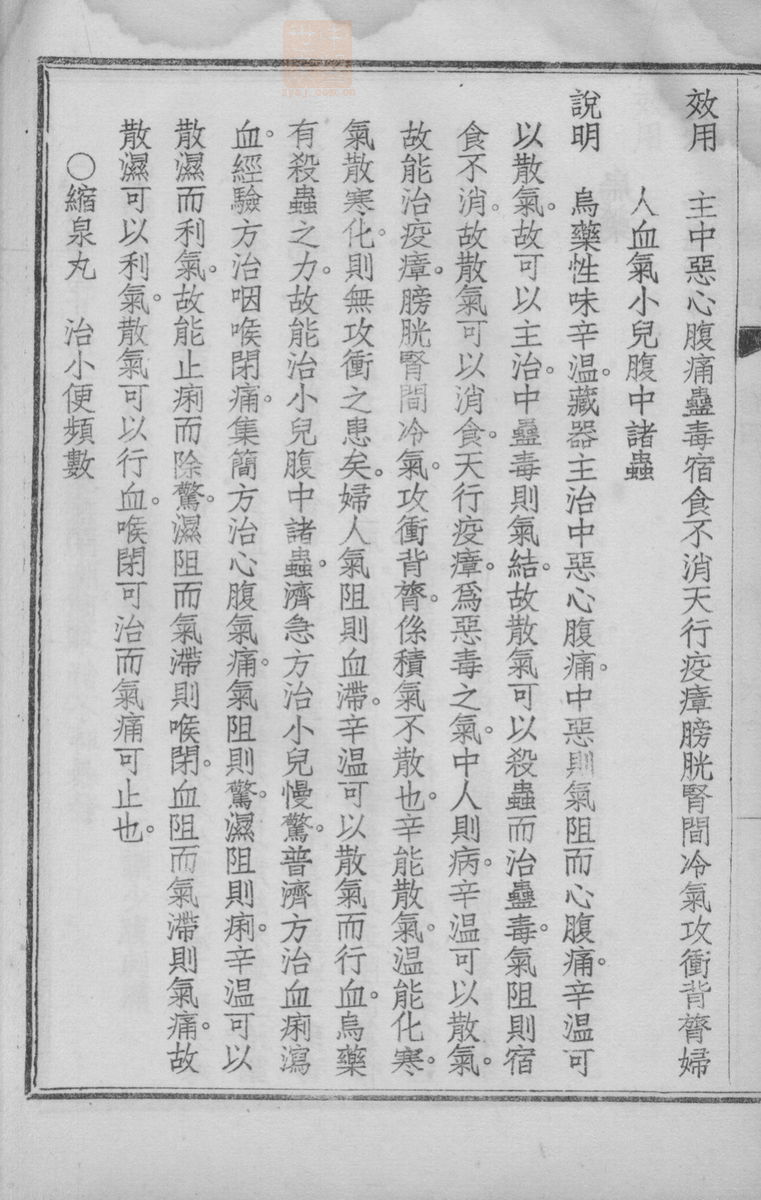 效用　主中惡心腹痛蠱毒宿食不消天行疫瘴膀胱腎間冷氣攻衝背膂婦
人血氣小兒腹中諸蟲
說明　烏藥性味辛溫。藏器主治中惡心腹痛。中惡則氣阻而心腹痛。辛溫可
以散氣。故可以主治。中蠱毒則氣結。故散氣可以殺蟲而治蠱毒。氣阻則宿
食不消。故散氣可以消食。天行疫瘴。爲惡毒之氣。中人則病。辛溫可以散氣。
故能治疫瘴。膀胱腎間冷氣。攻衝背膂。係積氣不散也。辛能散氣。溫能化寒。
氣散寒化。則無攻衝之患矣。婦人氣阻則血滯。辛溫可以散氣而行血。烏藥
有殺蟲之力。故能治小兒腹中諸蟲。濟急方治小兒慢驚。普濟方治血痢瀉
血。經驗方治咽喉閉痛。集簡方治心腹氣痛。氣阻則驚。濕阻則痢。辛溫可以
散濕而利氣。故能止痢而除驚。濕阻而氣滯則喉閉。血阻而氣滯則氣痛。故
散濕可以利氣。散氣可以行血。喉閉可治而氣痛可止也。
〇縮泉丸　治小便頻數